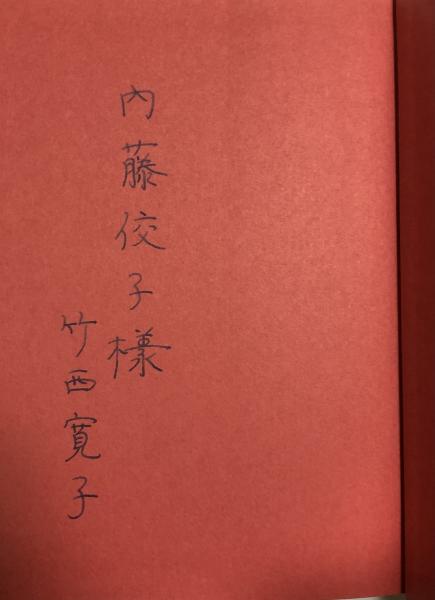 内藤佼子様
竹西寛子